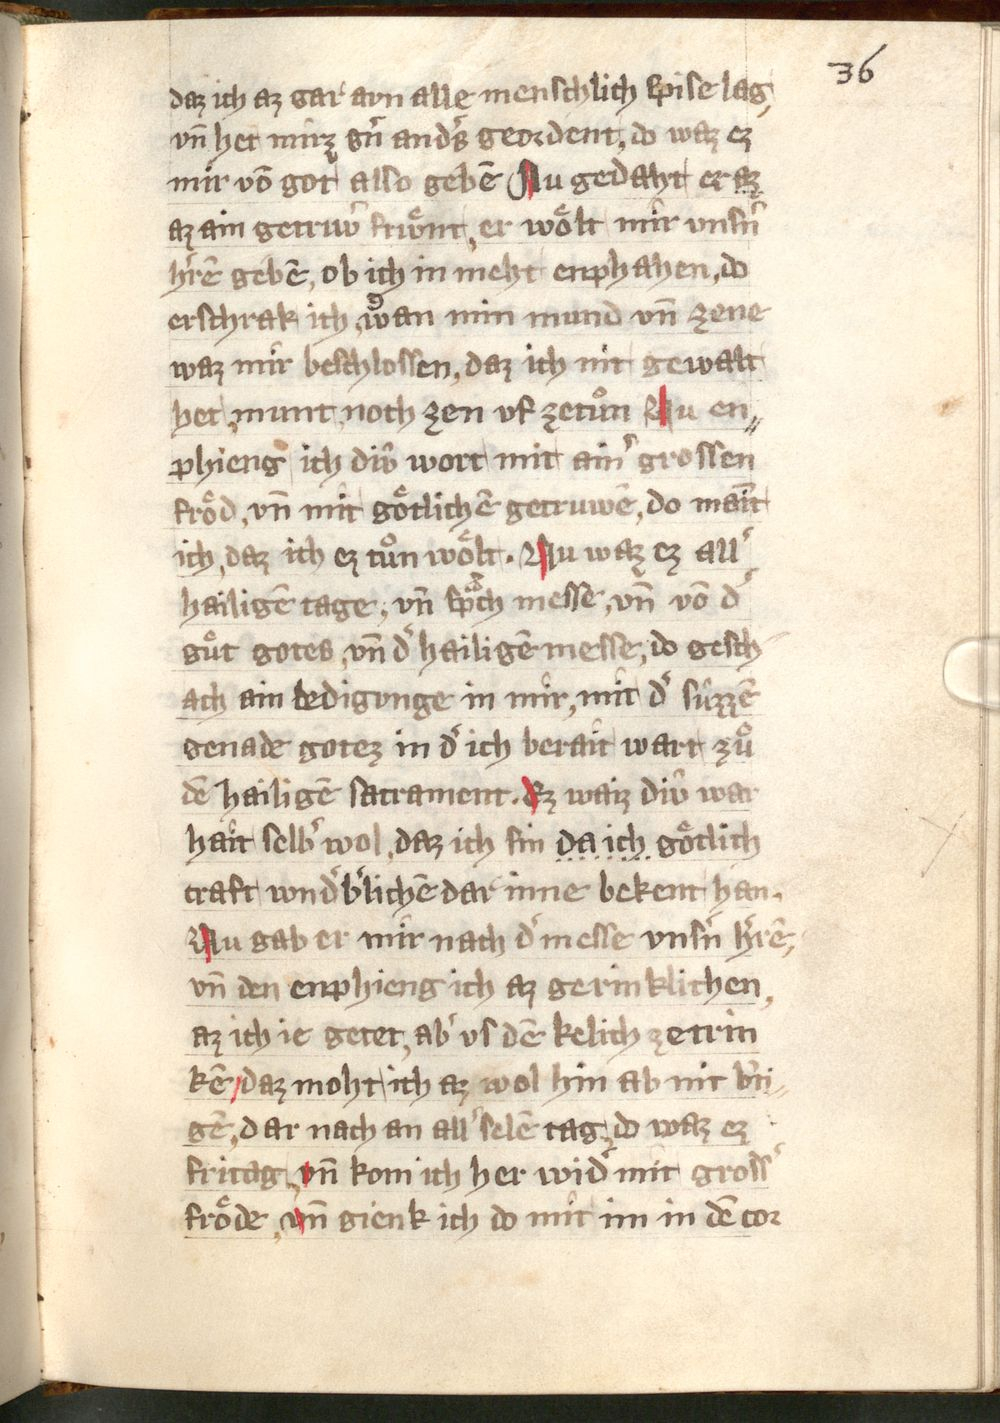 36
daz ich az gar aun alle menschlich spise lag,
vn̄ het mirz gn̄ anders geordent, do waz ez
mir võ got also gebẽ Nu gedaht er az
az ain getruwͥ friͮnt, er woͤlt mir vnsn̄
hrẽ gebẽ, ob ich in meht enphahen, do
erschrak ich, wan min mund vn̄ zene
waz mir beschlossen, daz ich nit gewalt
het, munt noch zen vf zetuͦn Nu en„
phieng ich diu wort mit ain͛ grossen
froͤd, vn̄ mit goͤtlichẽ getruwẽ, do maīt
ich, daz ich ez tuͦn woͤlt. Nu waz ez all͛
hailigẽ tage, vn̄ sprach messe, vn̄ võ d͛
guͤt gotes, vn̄ d͛ hailigẽ messe, do gesch
ach ain ledigvnge in mir, mit d͛ suͤzzẽ
genade gotez in d͛ ich berait wart zuͦ
dẽ hailigẽ sacrament. Ez waiz diu war
hait selb͛ wol, daz ich sin da ich goͤtlich
craft wnd͛b͛lichẽ dar inne bekent han.
Nu gab er mir nach d͛ messe vnsn̄ h͛rẽ,
vn̄ den enphieng ich az gerinklichen,
az ich ie getet, ab͛ vs dẽ kelich zetrin
kẽ, daz moht ich az wol hin ab nit bri„
gẽ, dar nach an all͛ selẽ tag, do waz ez
fritag, vn̄ kom ich her wid͛ mit gross͛
froͤde, vn̄ gienk ich do mit im in dẽ cor